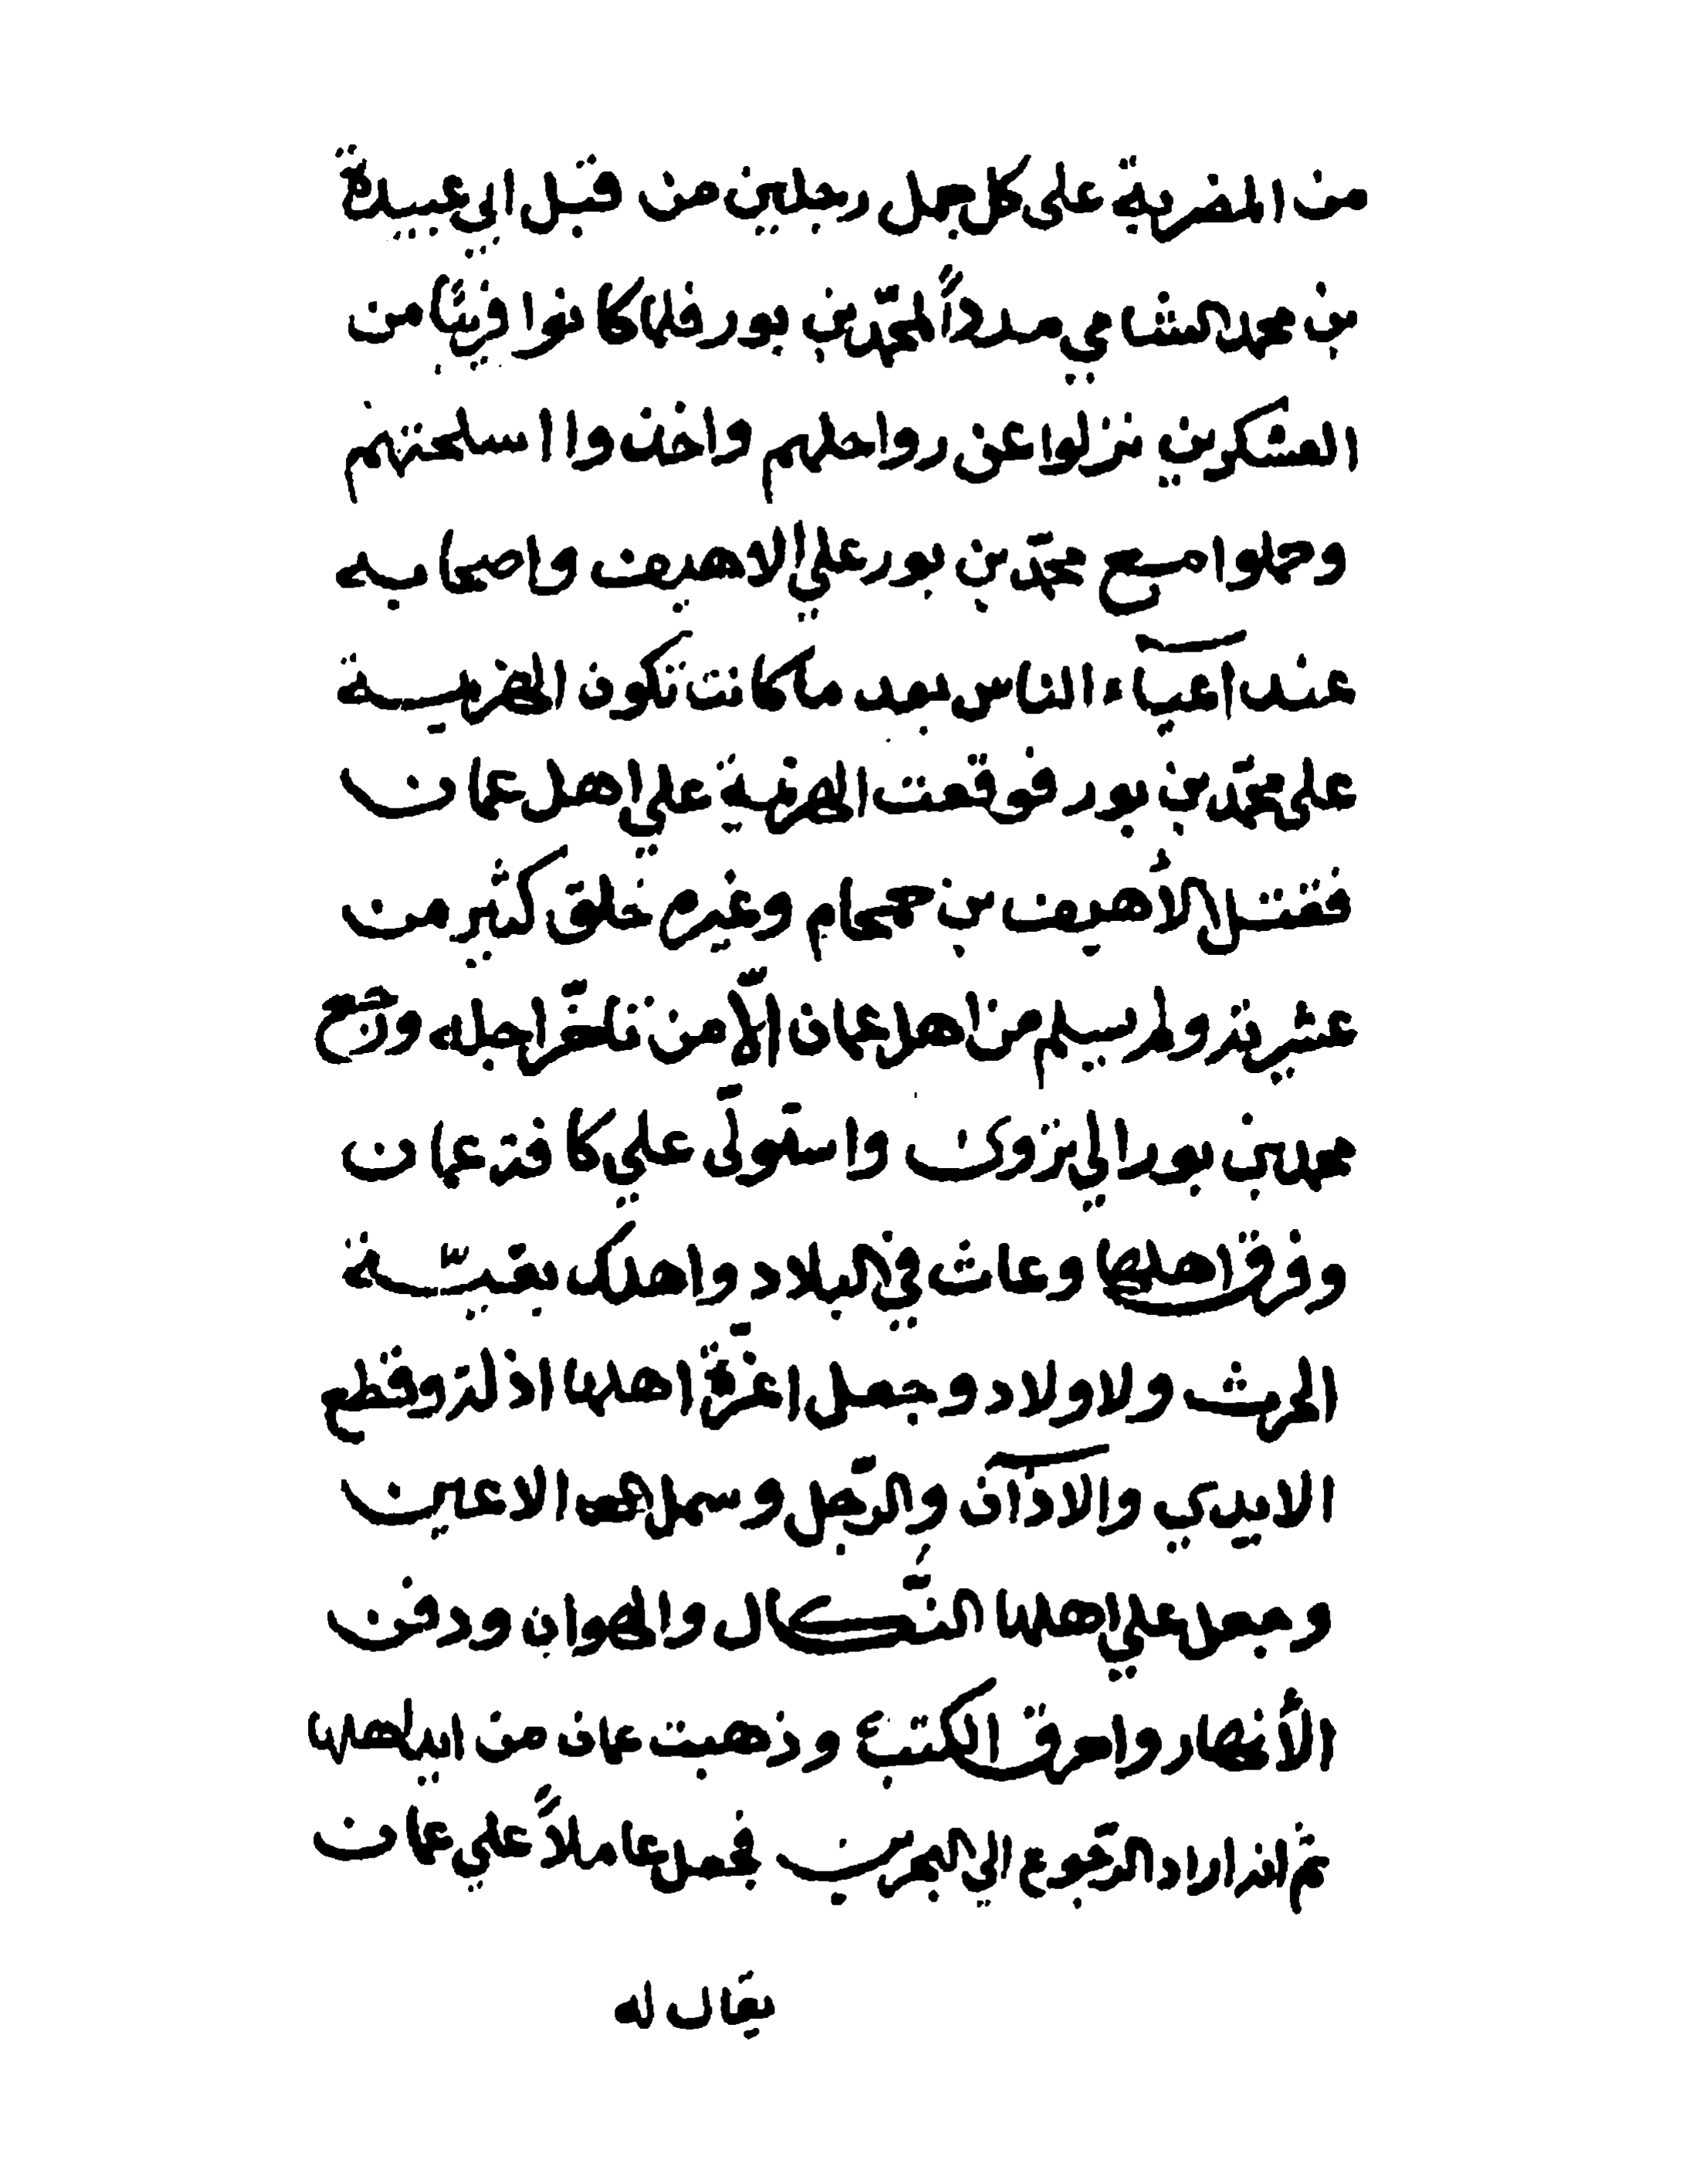 من المضرية على كل جمل رجلين من قبل ابي عبيدة
بن محمد الشامي مدداً لمحمّد بن بور فلما كانوا قريبًا من
العسكرين نزلوا عن رواحلهم واخذوا اسلحتهم
وحملوا مع محمّد بن بور علي الاهيف واصحابه
عند اعيآء الناس بعد ما كانت تكون الهزيمة
على محمّد بن بور فوقعت الهزيمة علي اهل عمان
فقتل الأهيف بن حمحام وغيره خلق كثير من
عشيرته ولم يسلم من اهل عمان الّا من تاخّر اجله ورجع
محمد بن بور الي نزوى واستولّى علي كافة عمان
وفرق اهلها وعاث في البلاد واهلك بقيّة
الحرث ولاولاد وجعل اعزّة اهلها اذلة وقطع
الايدي والاذآن والرّجل وسمل الاعين
وجعل علي اهلها النّكال والهوان ودفن
الأنهار واحرق الكتب وذهبت عمان من ايد اهلها
ثم انه اراد الرّجوع الي البحرين فجعل عاملاً علي عمان
يقال له